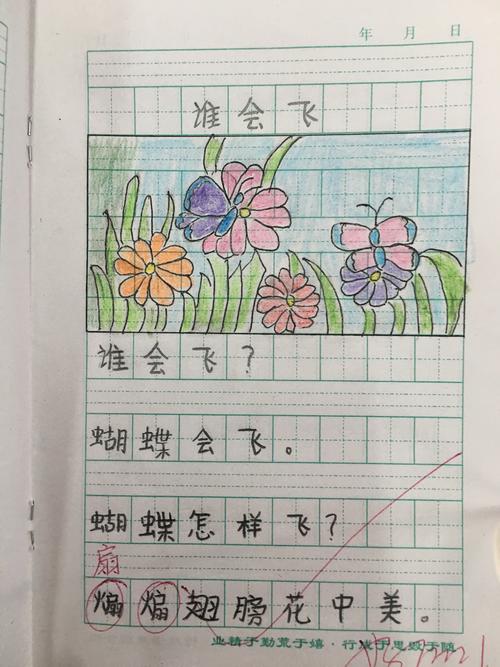 年 月 日
谁会飞
谁会飞？
蝴蝶会飞。
蝴蝶怎样飞？
扇
煽煽翅膀花中美。
业精于勤荒于嬉·行成于思毁于随